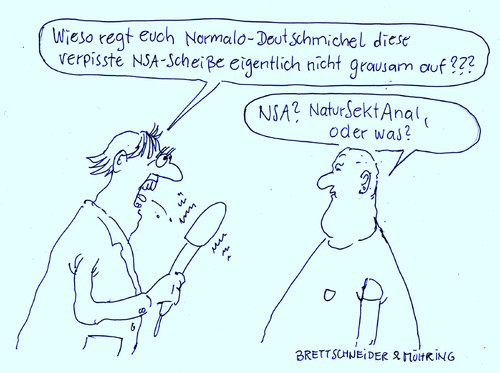 Wieso regt euch Normalo-Deutschmichel diese
verpisste NSA-Scheiße eigentlich nicht grausam auf???
NSA? NaturSektAnal,
oder was?
BRETTSCHNEIDER & MÖHRING